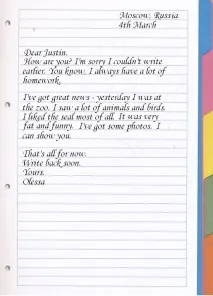 Moscow, Russia
4th March
Dear Justin.
How are you? I'm sorry I couldn't write
earlier. You know, I always have a lot of
homework.
I've got great news - yesterday I was at
the zoo. I saw a lot of animals and birds.
I liked the seal most of all. It was very
fat and funny. I've got some photos. I
can show you.
That's all for now.
Write back soon.
Yours.
Olessa